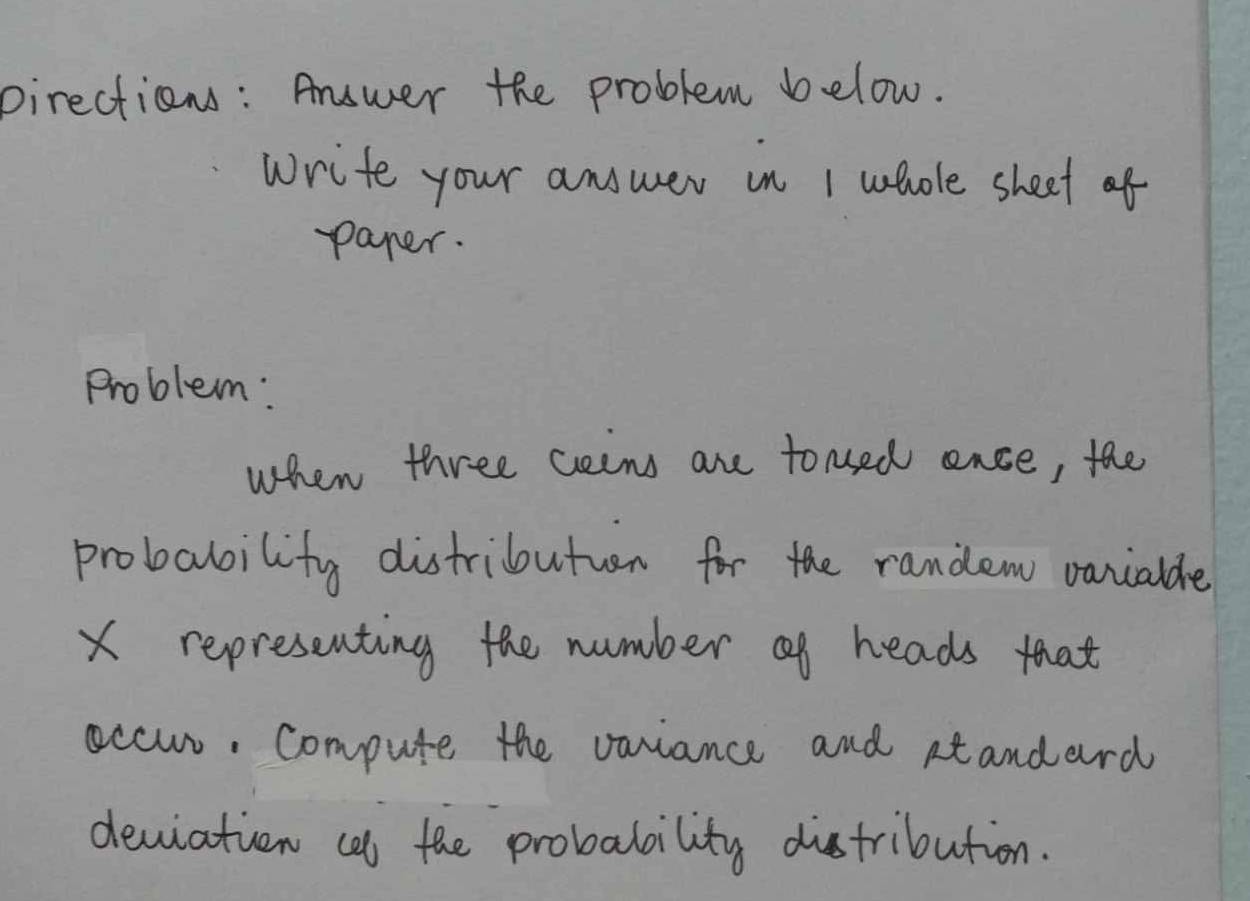 Directions: Answer the problem below.
Write your answer in 1 whole sheet of
paper.
Problem:
when three coins are tossed once, the
probability distribution for the random variable
X representing the number of heads that
occur. Compute the variance and standard
deviation of the probability distribution.